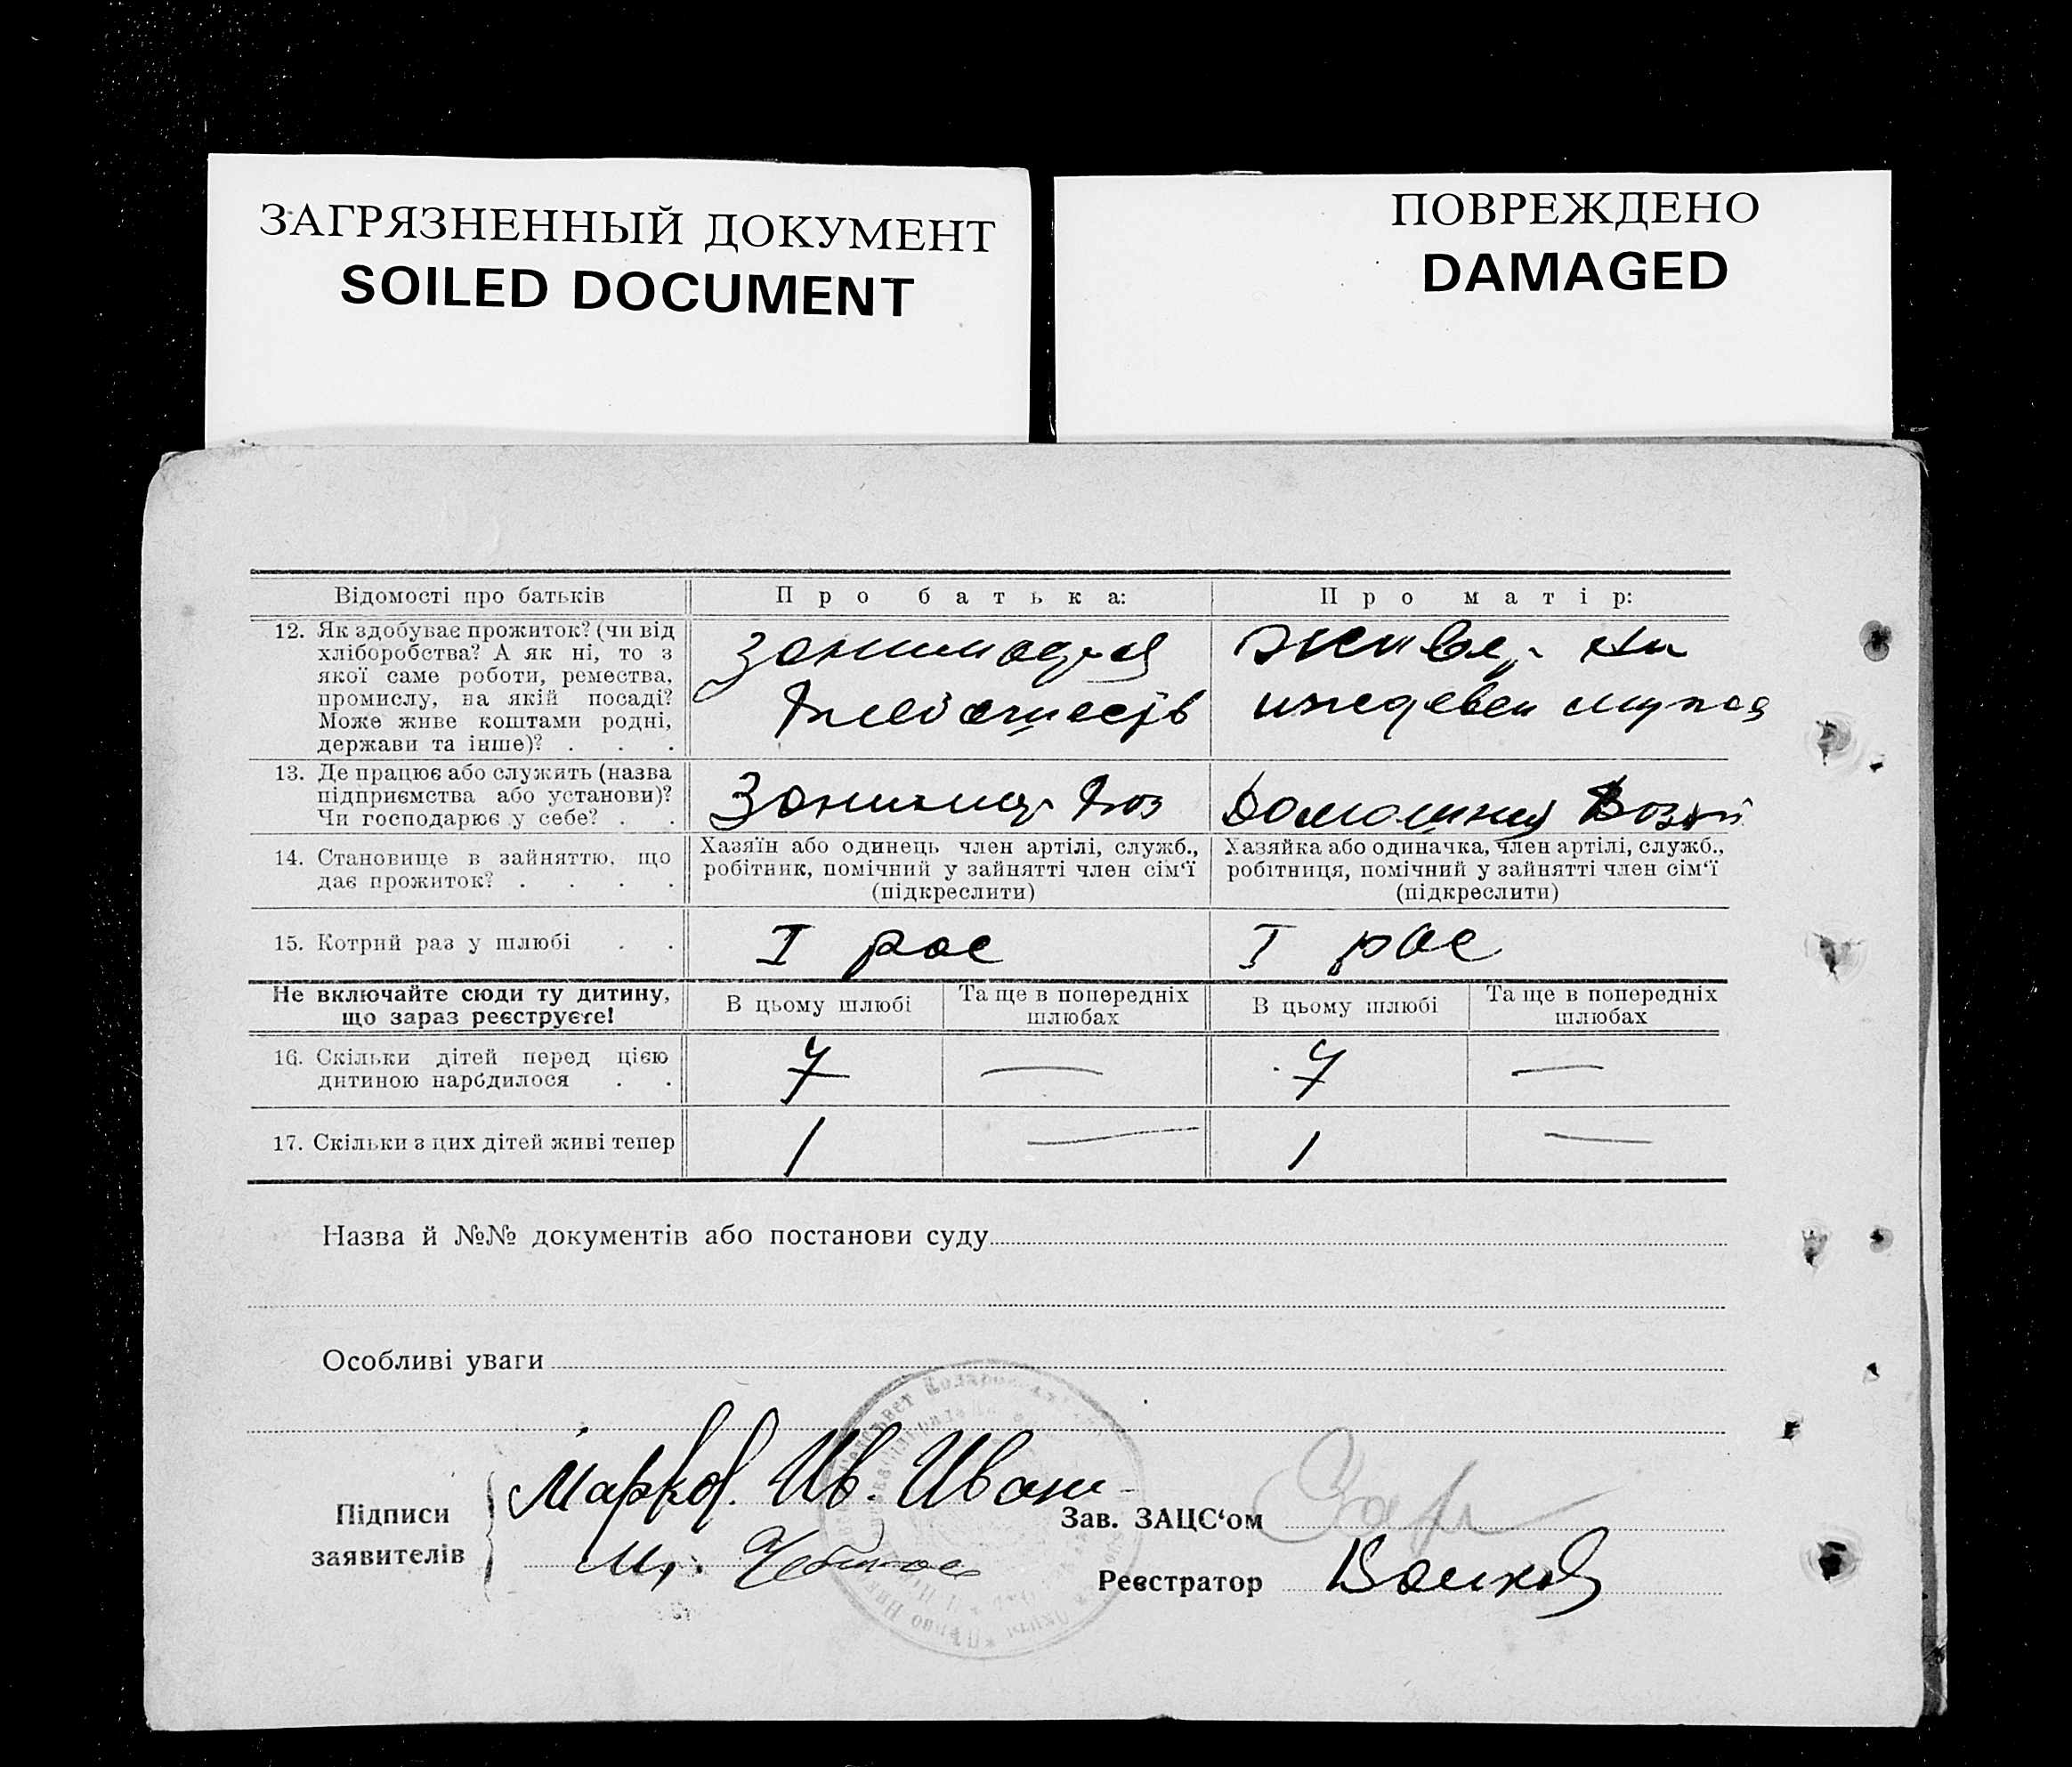 ЗАГРЯЗНЕННЫЙ ДОКУМЕНТ
SOILED DOCUMENT
ПОВРЕЖДЕНО
DAMAGED
Відомості про батьків
Про батька:
Про матір:
12. Як здобуває прожиток? (чи від
хліборобства? А як ні, то з
якої саме роботи, ремества,
промислу, на якій посаді?
Може живе коштами родні,
держави та інше)? . . .
живе на
13. Де працює або служить (назва
підприємства або установи)?
Чи господарює у себе? . .
14. Становище в зайняттю, що
дає прожиток? . . . .
Хазяїн або одинець член артілі, служб.,
робітник, помічний у зайнятті член сім‘ї
(підкреслити)
Хазяйка або одиначка, член артілі, служб.,
робітниця, помічний у зайнятті член сім‘ї
(підкреслити)
15. Котрий раз у шлюбі . .
I рас
I рас
Не включайте сюди ту дитину,
що зараз реєструєте!
В цьому шлюбі
Та ще в попередніх
шлюбах
В цьому шлюбі
Та ще в попередніх
шлюбах
16. Скільки дітей перед цією
дитиною народилося . .
7
—
7
—
17. Скільки з цих дітей живі тепер
1
—
1
—
Назва й №№ документів або постанови суду
Особливі уваги
Підписи
заявителів
Марков. Ив. Иван
Зав. ЗАЦС‘ом
Реєстратор